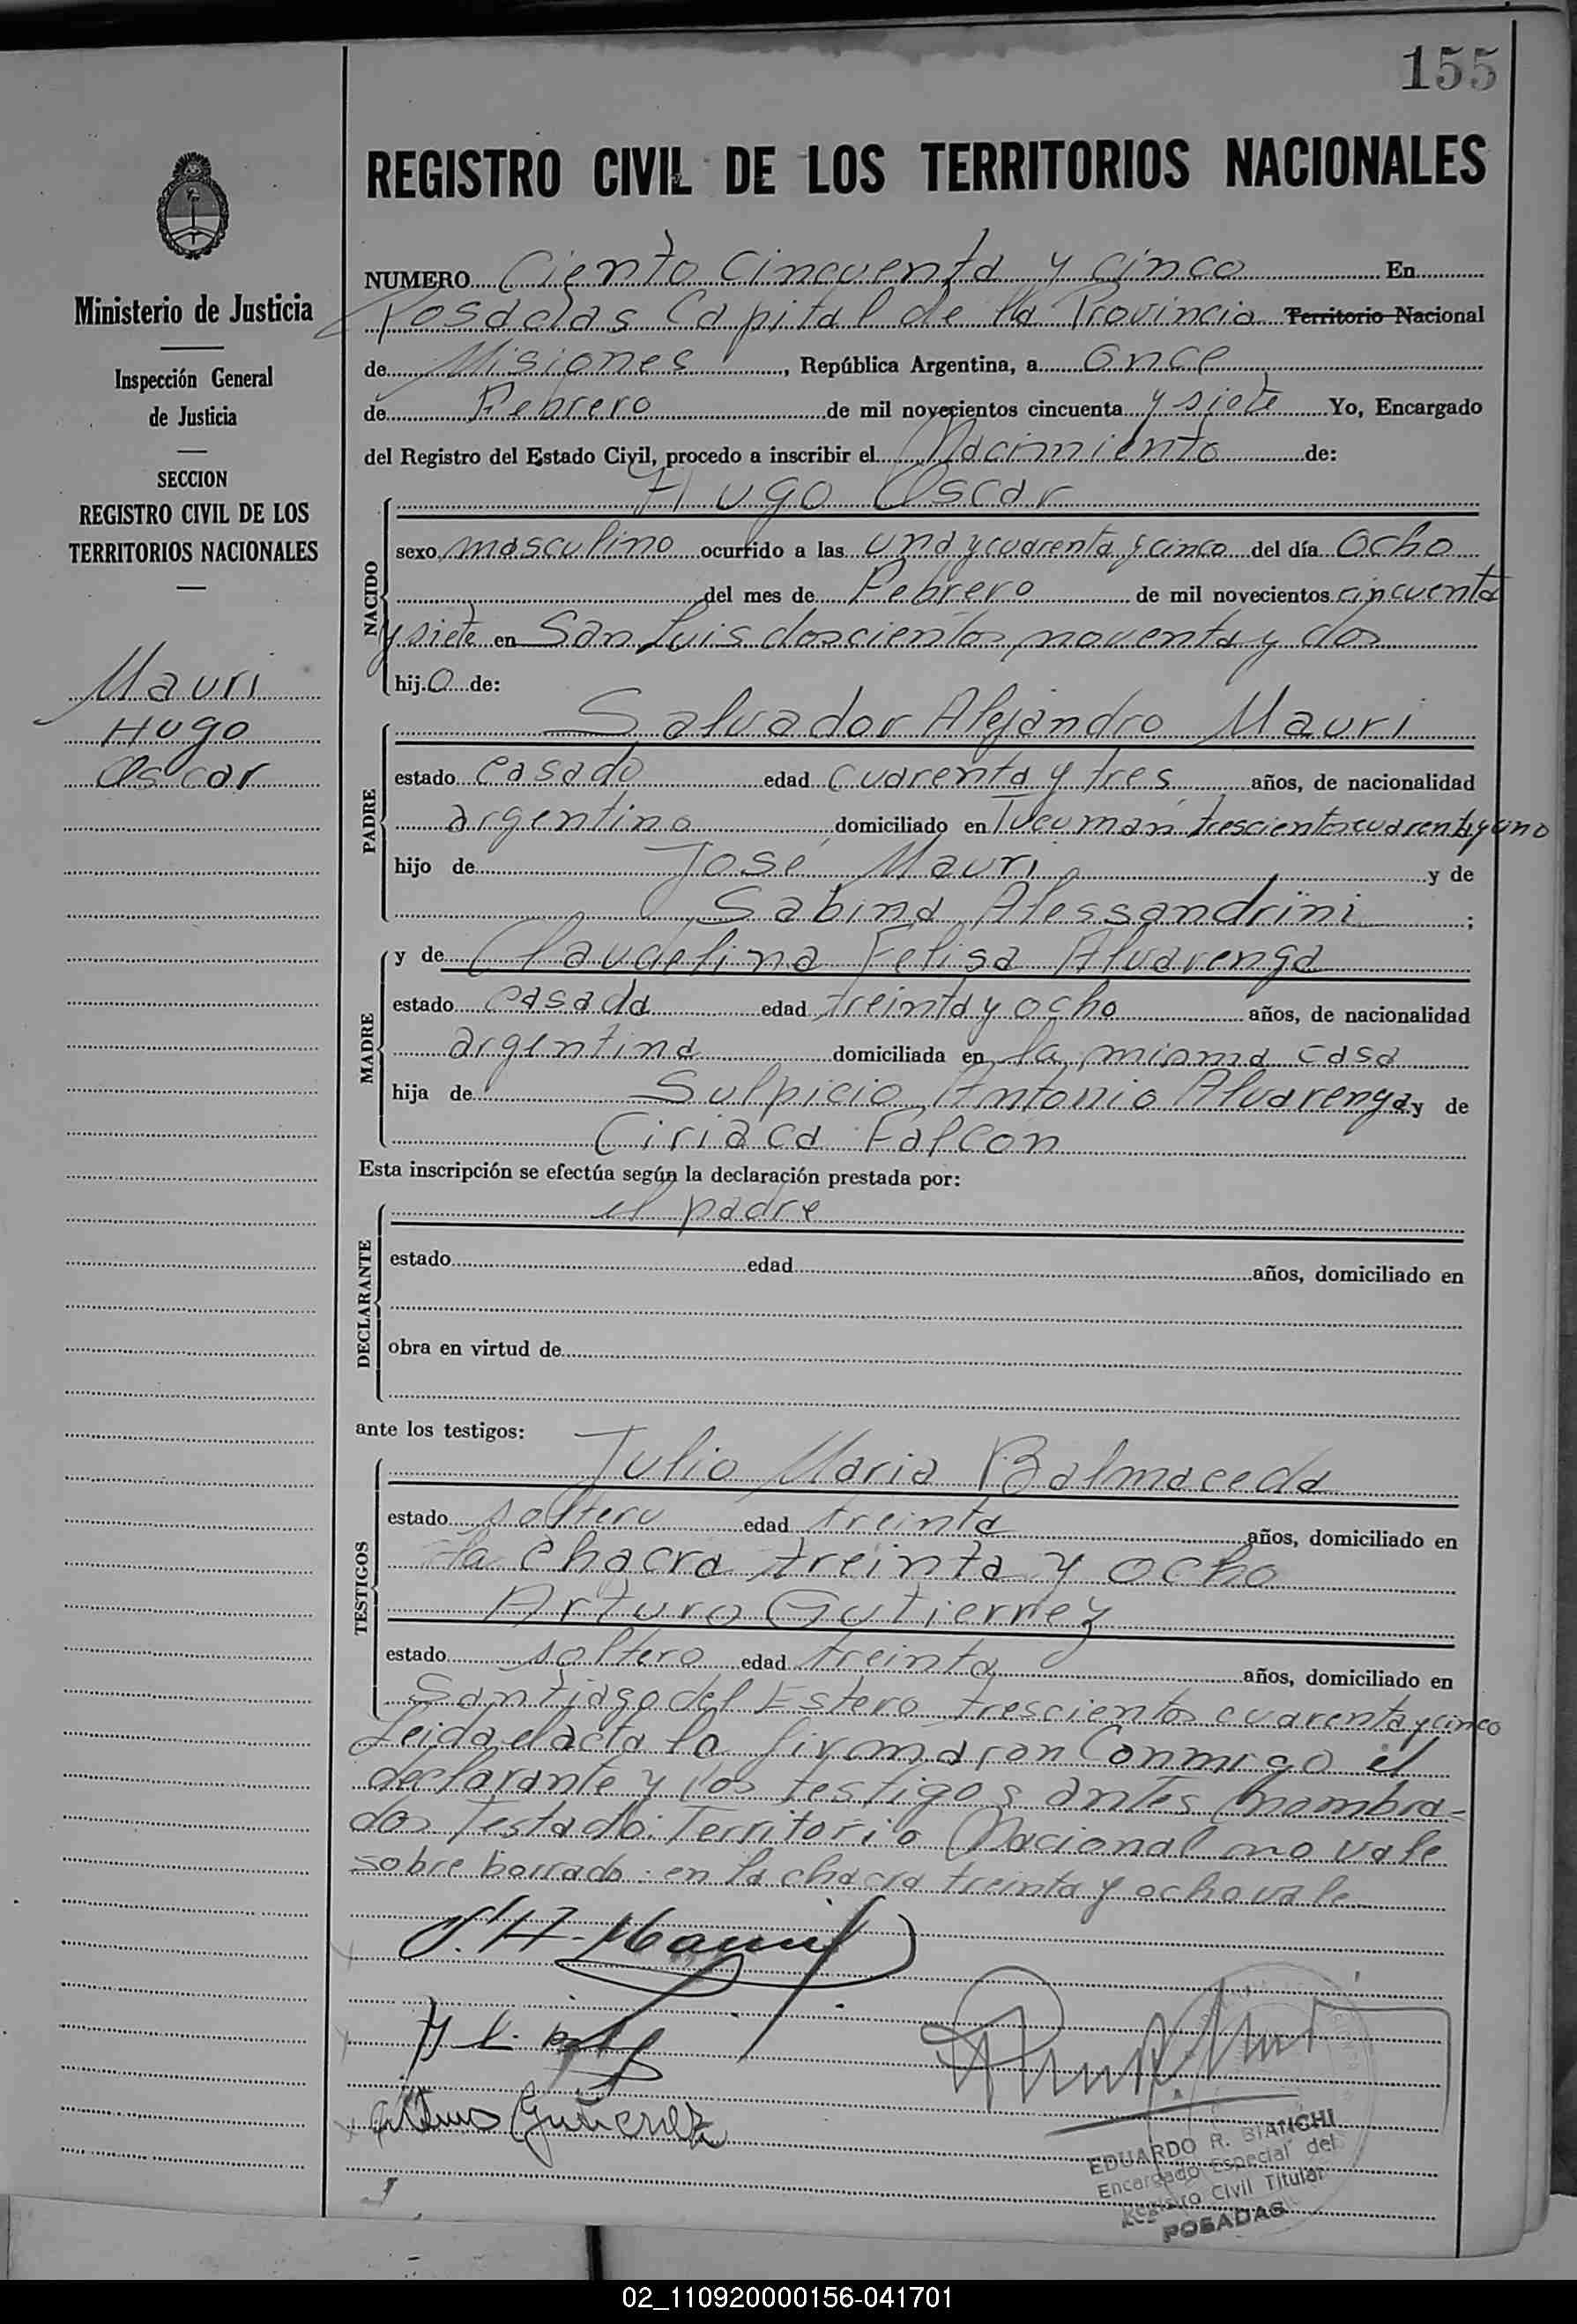 155
REGISTRO CIVIL DE LOS TERRITORIOS NACIONALES
Ministerio de Justicia
Inspección General
de Justicia
SECCION
REGISTRO CIVIL DE LOS
TERRITORIOS NACIONALES
Mauri
Hugo
Oscar
NUMERO Ciento Cincuenta y cinco En
Posadas Capital de la Provincia Territorio Nacional
de Misiones, República Argentina, a Once
de Febrero de mil novecientos cincuenta y siete Yo, Encargado
del Registro del Estado Civil, procedo a inscribir el Nacimiento de:
NACIDO
Hugo Oscar
sexo masculino ocurrido a las una y cuarenta y cinco del día Ocho
del mes de Febrero de mil novecientos cincuenta
y siete en San Luis doscientos noventa y dos
hijo de:
PADRE
Salvador Alejandro Mauri
estado casado edad cuarenta y tres años, de nacionalidad
argentino domiciliado en Tucumán trescientos cuarenta y uno
hijo de José Mauri y de
Sabina Alessandrini ;
MADRE
y de Claudelina Felisa Alvarenga
estado casada edad treinta y ocho años, de nacionalidad
argentina domiciliada en la misma casa
hija de Sulpicio Antonio Alvarenga y de
Ciriaca Falcon
Esta inscripción se efectúa según la declaración prestada por:
DECLARANTE
el padre
estado edad años, domiciliado en
obra en virtud de
ante los testigos:
TESTIGOS
Julio Maria Balmaceda
estado soltero edad treinta años, domiciliado en
la chacra treinta y ocho
Arturo Gutierrez
estado soltero edad treinta años, domiciliado en
Santiago del Estero trescientos cuarenta y cinco
Leida el acta la firmaron conmigo el
declarante y los testigos antes nombra=
dos Testado: Territorio Nacional no vale
sobre borrado: en la chacra treinta y ocho vale
S. A. Mauri
Arturo Gutierrez
EDUARDO R. BIANCHI
Encargado Especial del
Registro Civil Titular
POSADAS
02_110920000156-041701